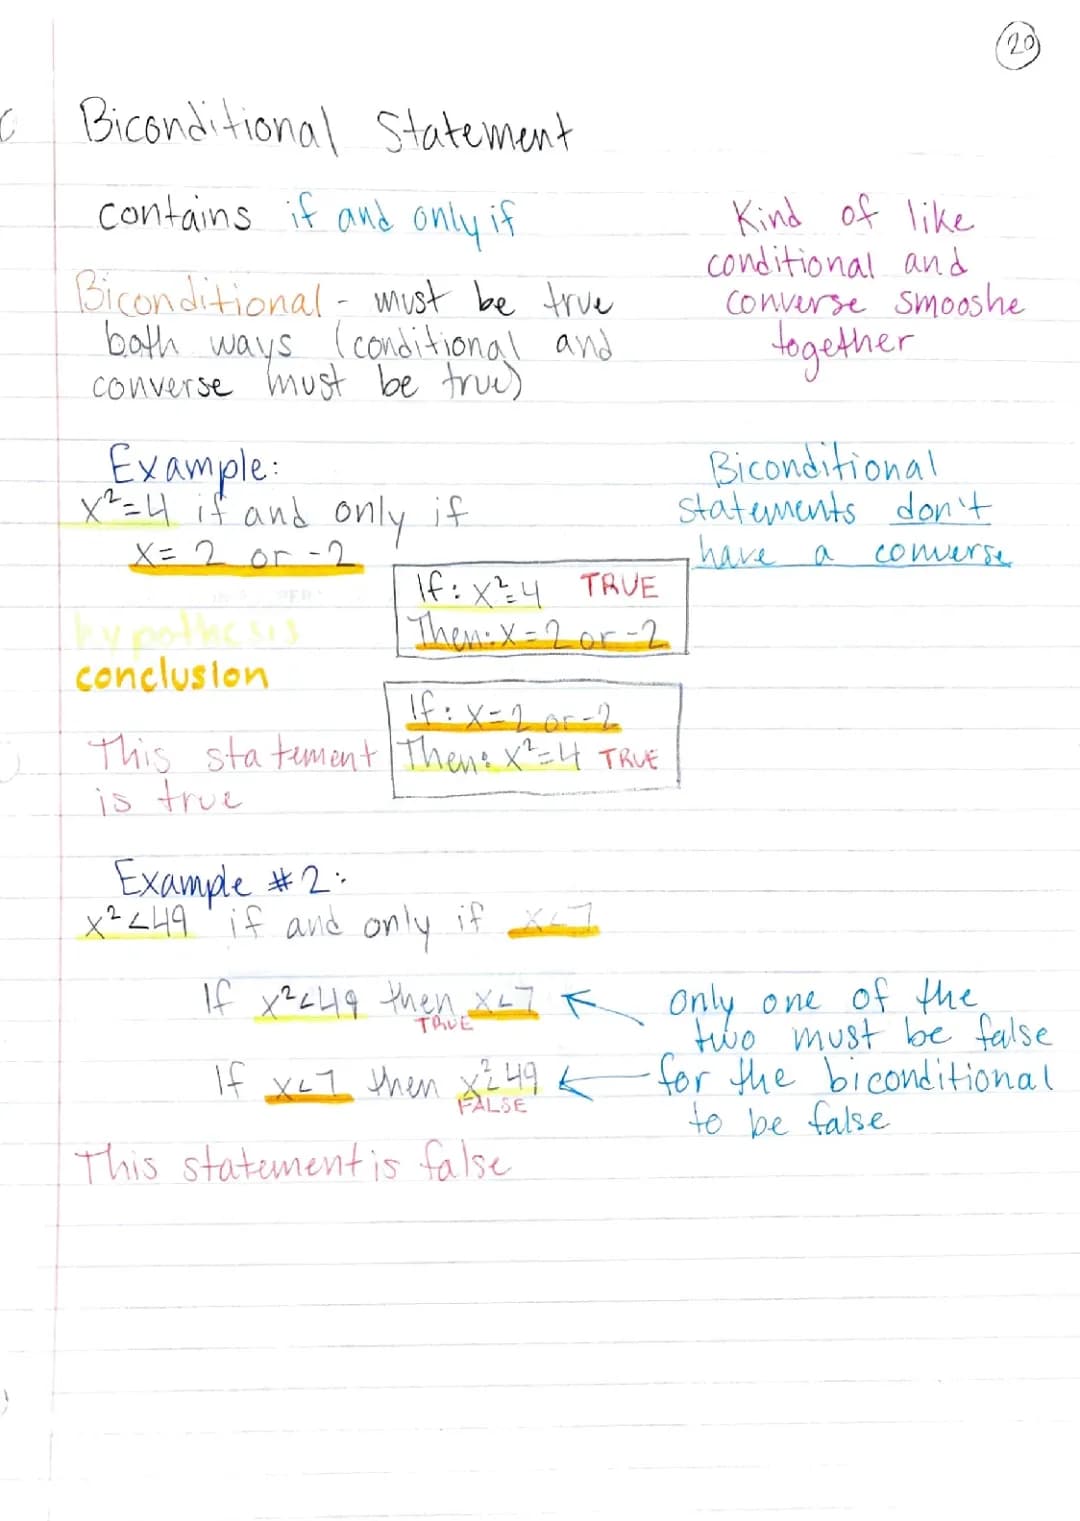 20
Biconditional Statement
contains if and only if
Kind of like
conditional and
converse smooshe
together
Biconditional - must be true
both ways (conditional and
converse must be true)
Example:
x²=4 if and only if
x= 2 or -2
Biconditional
statements don't
have a converse
If: x²=4 TRUE
Then: x=2 or -2
hypothesis
conclusion
If: x=2 or -2
Then: x²=4 TRUE
This statement
is true
Example #2:
x²<49 if and only if x<7
If x²<49 then x<7
TRUE
If x<7 then x²<49
FALSE
only one of the
two must be false
for the biconditional
to be false
This statement is false